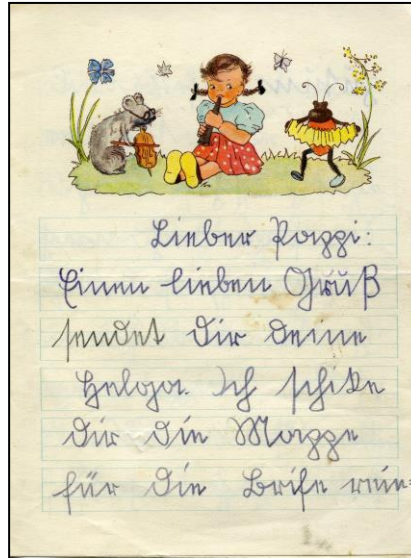 Lieber Pappi:
Einen lieben Gruß
sendet Dir deine
Helga. Ich schike
Dir die Mappe
für die Brife rein=